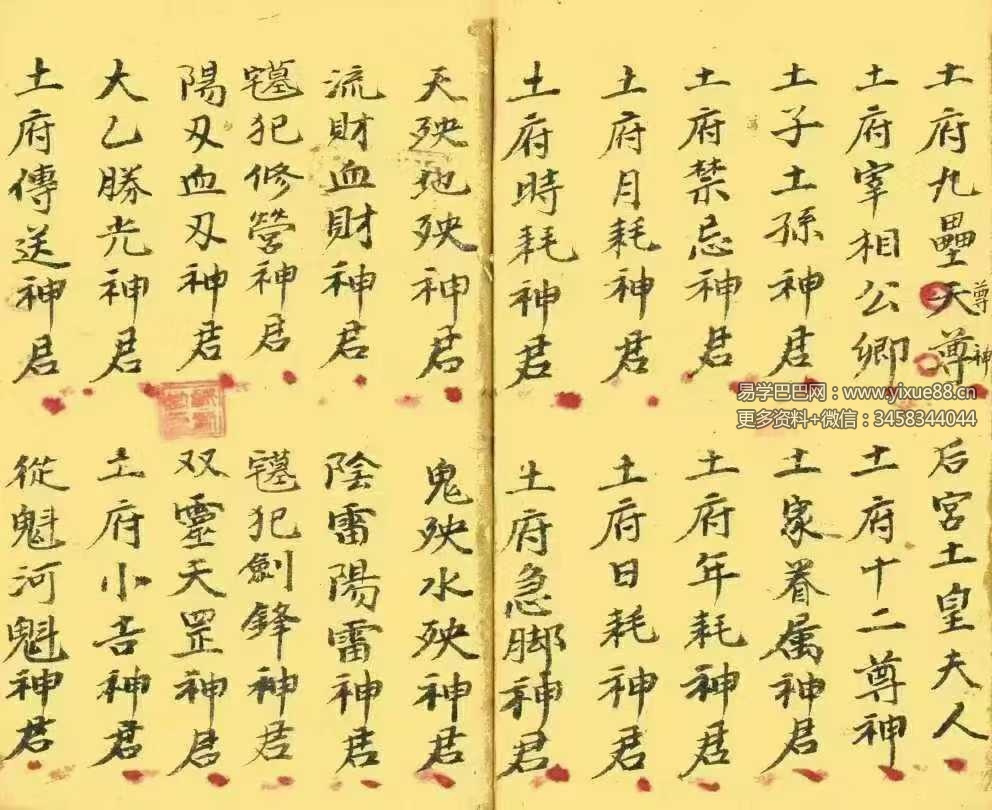 土府九壘天尊
尊神
后宮土皇夫人
土府宰相公卿
土府十二尊神
土子土孫神君
土家眷属神君
土府禁忌神君
土府年耗神君
土府月耗神君
土府日耗神君
土府時耗神君
土府急脚神君
天殃地殃神君
鬼殃水殃神君
流財血財神君
陰雷陽雷神君
宅墓犯修營神君
宅墓犯劍鋒神君
陽刃血刃神君
双靈天罡神君
大乙勝光神君
土府小吉神君
土府傳送神君
從魁河魁神君
易学巴巴网：www.yixue88.cn
更多资料+微信：3458344044